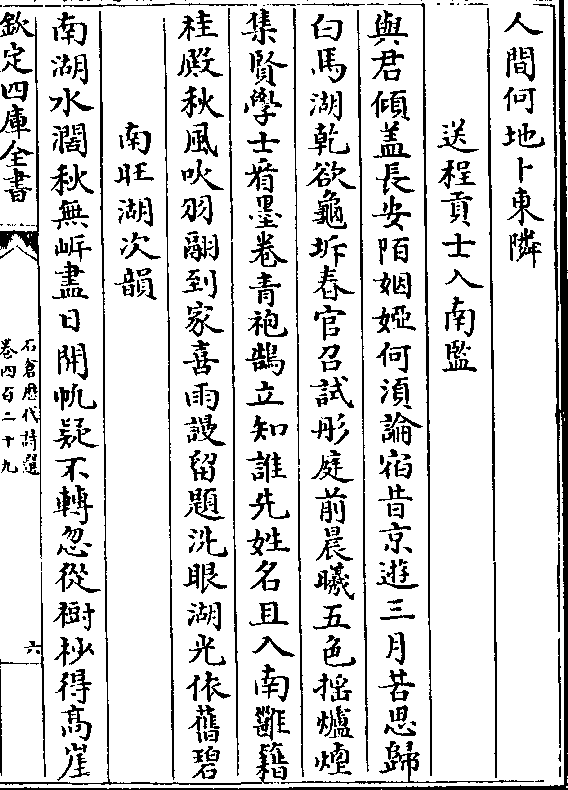 人間何地卜東隣
送程貢士入南監
與君傾盖長安陌姻婭何湏論宿昔京遊三月苦思歸
白馬湖乾欲龜坼春官召試彤庭前晨曦五色揺爐煙
集賢學士看墨卷青袍鵠立知誰先姓名且入南雝籍
桂殿秋風吹羽翮到家喜雨謾留題洗眼湖光依舊碧
南旺湖次韻
南湖水濶秋無岸盡日開帆疑不轉忽從樹杪得高崖
欽定四庫全書
石倉歴代詩選
卷四百二十九
六